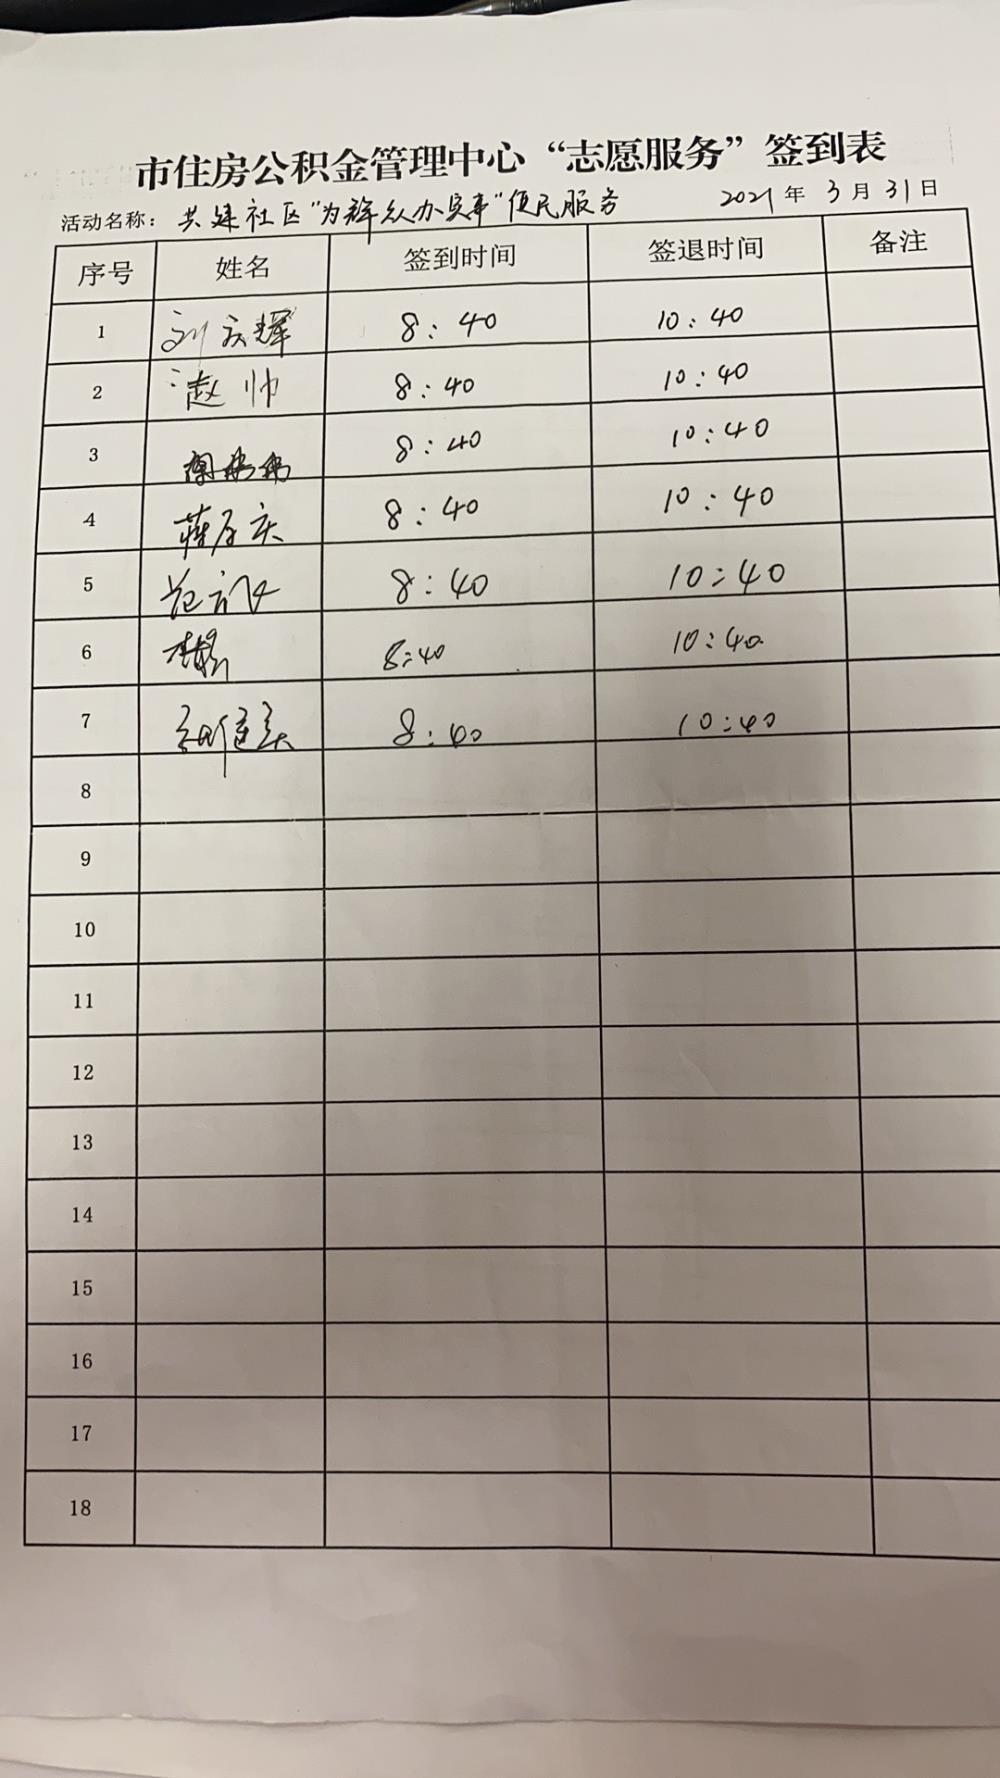 市住房公积金管理中心“志愿服务”签到表
活动名称：共建社区“为群众办实事”便民服务 2021年3月31日
序号 姓名 签到时间 签退时间 备注
1 刘庆辉 8:40 10:40
2 赵帅 8:40 10:40
3 8:40 10:40
4 8:40 10:40
5 8:40 10:40
6 8:40 10:40
7 8:40 10:40
8
9
10
11
12
13
14
15
16
17
18